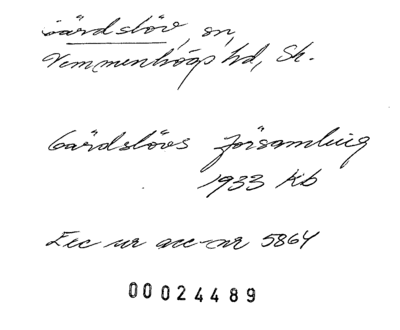 Gärdslöv, sn,
Vemmenhögs hd, Sk.
Gärdslövs församling
1933 Kb
Exc ur acc-nr 5864
00024489